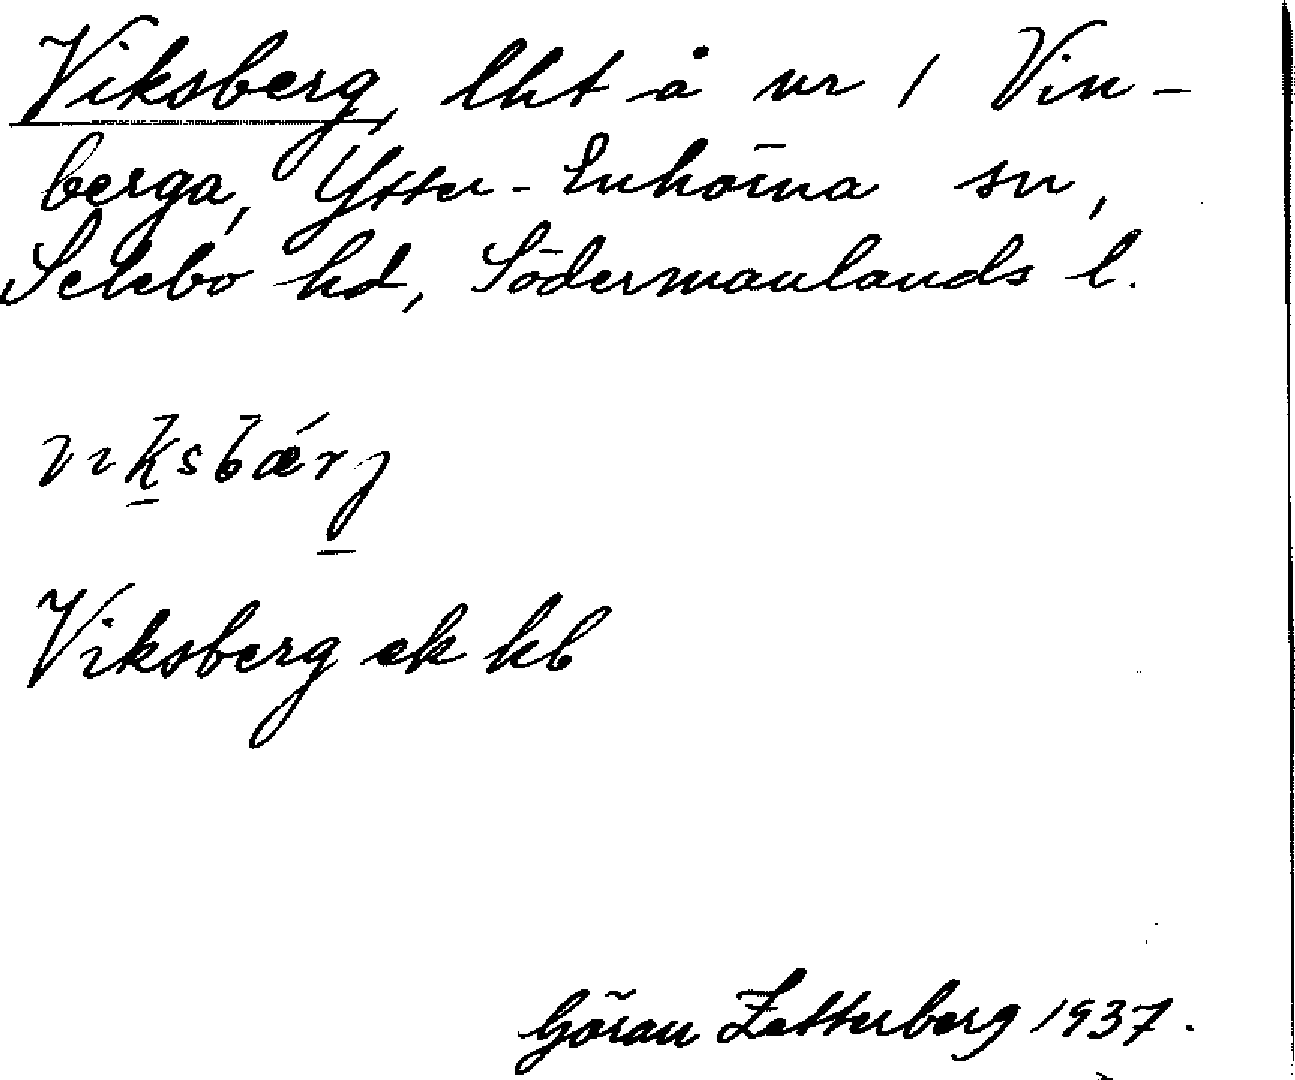 Viksberg, lht å nr 1 Vin-
berga, Ytter-Enhörna sn,
Selebo hd, Södermanlands l.
viksbærj
Viksberg ek kb
Göran Zetterberg 1937.